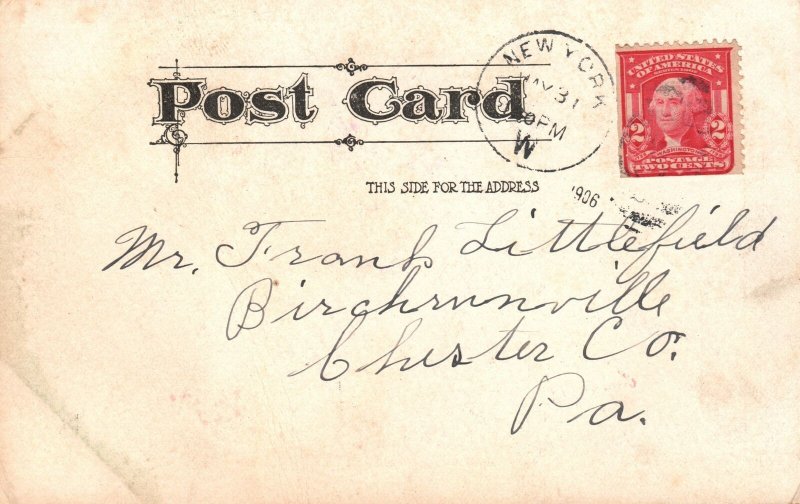 Post Card
NEW YORK
MAY 31
PM
W
1906
UNITED STATES
OF AMERICA
2 2
WASHINGTON
POSTAGE
TWO CENTS
THIS SIDE FOR THE ADDRESS
Mr. Frank Littlefield
Birchrunville
Chester Co.
Pa.